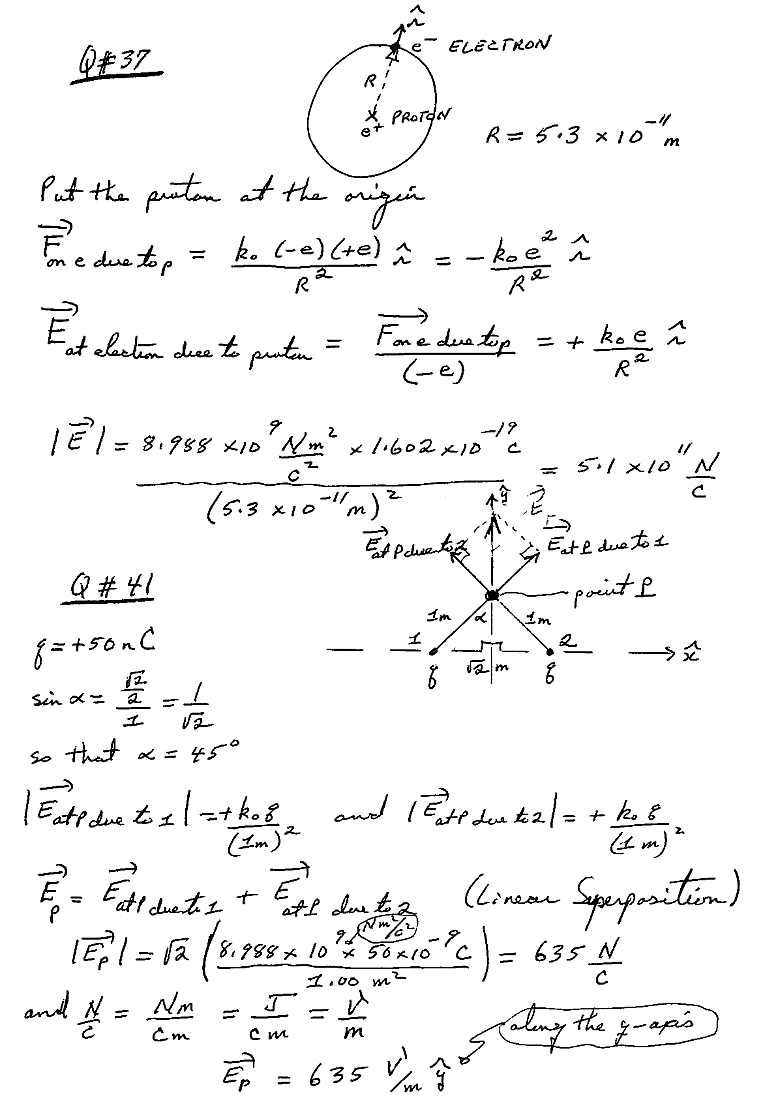 Q#37
r̂
e⁻ ELECTRON
R
e⁺ PROTON
R = 5.3 × 10⁻¹¹ m
Put the proton at the origin
F⃗ on e due to p = k₀ (-e)(+e) / R² r̂ = - k₀e² / R² r̂
E⃗ at electron due to proton = F⃗ on e due to p / (-e) = + k₀e / R² r̂
|E⃗| = 8.988 × 10⁹ Nm²/C² × 1.602 × 10⁻¹⁹ C / (5.3 × 10⁻¹¹ m)² = 5.1 × 10¹¹ N/C
ŷ E⃗
E⃗ at P due to 2 E⃗ at P due to 1
Q # 41
point P
1m α 1m
1 2
q √2 m q x̂
q = +50 nC
sin α = (√2/2) / 1 = 1/√2
so that α = 45°
|E⃗ at P due to 1| = + k₀q / (1m)² and |E⃗ at P due to 2| = + k₀q / (1m)²
E⃗p = E⃗ at P due to 1 + E⃗ at P due to 2 (Linear Superposition)
|E⃗p| = √2 (8.988 × 10⁹ Nm²/C² × 50 × 10⁻⁹ C / 1.00 m²) = 635 N/C
and N/C = Nm/Cm = J/Cm = V/m
along the y-axis
E⃗p = 635 V/m ŷ